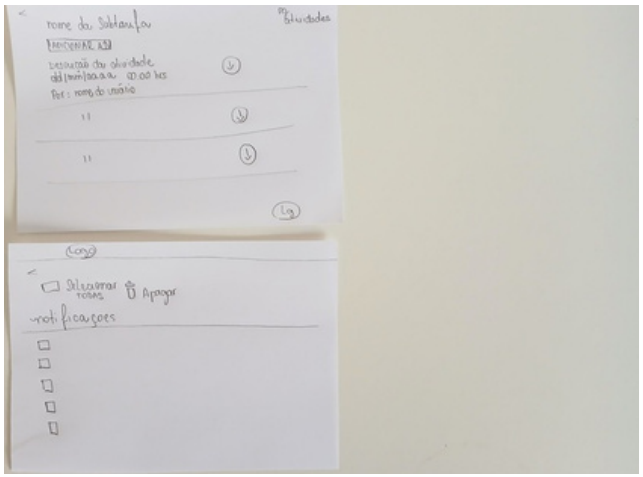 <
nome da Subtarefa
atividades
ADICIONAR
Descrição da atividade
dd/mm/aaaa 00:00 hrs
Por: nome do usuário
"
"
Logo
<
Selecionar
TODAS
Apagar
notificações